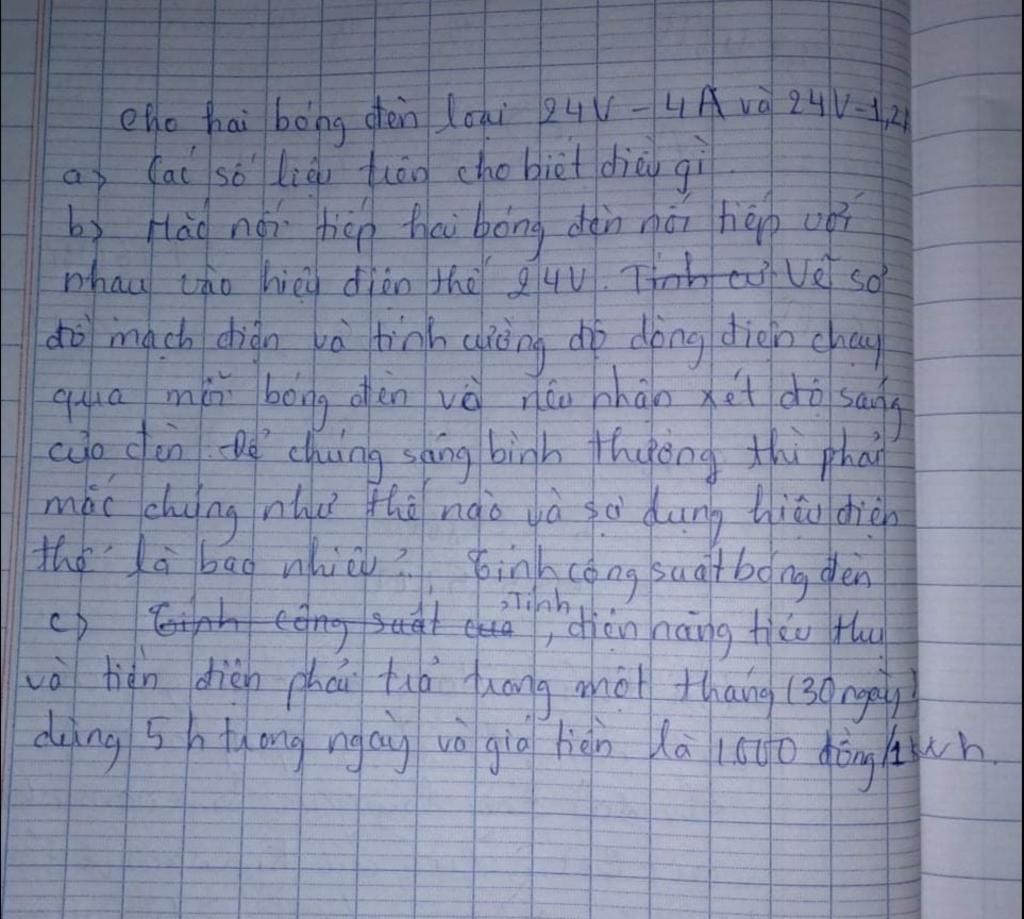 cho hai bóng đèn loại 24V - 4A và 24V-1,2A
a) Các số liệu trên cho biết điều gì
b) Mắc nối tiếp hai bóng đèn nối tiếp với
nhau vào hiệu điện thế 24V. Tính cư Vẽ sơ
đồ mạch điện và tính cường độ dòng điện chạy
qua mỗi bóng đèn và nêu nhận xét độ sáng
của đèn. Để chúng sáng bình thường thì phải
mắc chúng như thế nào và sử dụng hiệu điện
thế là bao nhiêu? Tính công suất bóng đèn
c) Tính công suất của , Tính điện năng tiêu thụ
và tiền điện phải trả trong một tháng (30 ngày)
dùng 5h trong ngày và giá tiền là 1.000 đồng/1kwh.